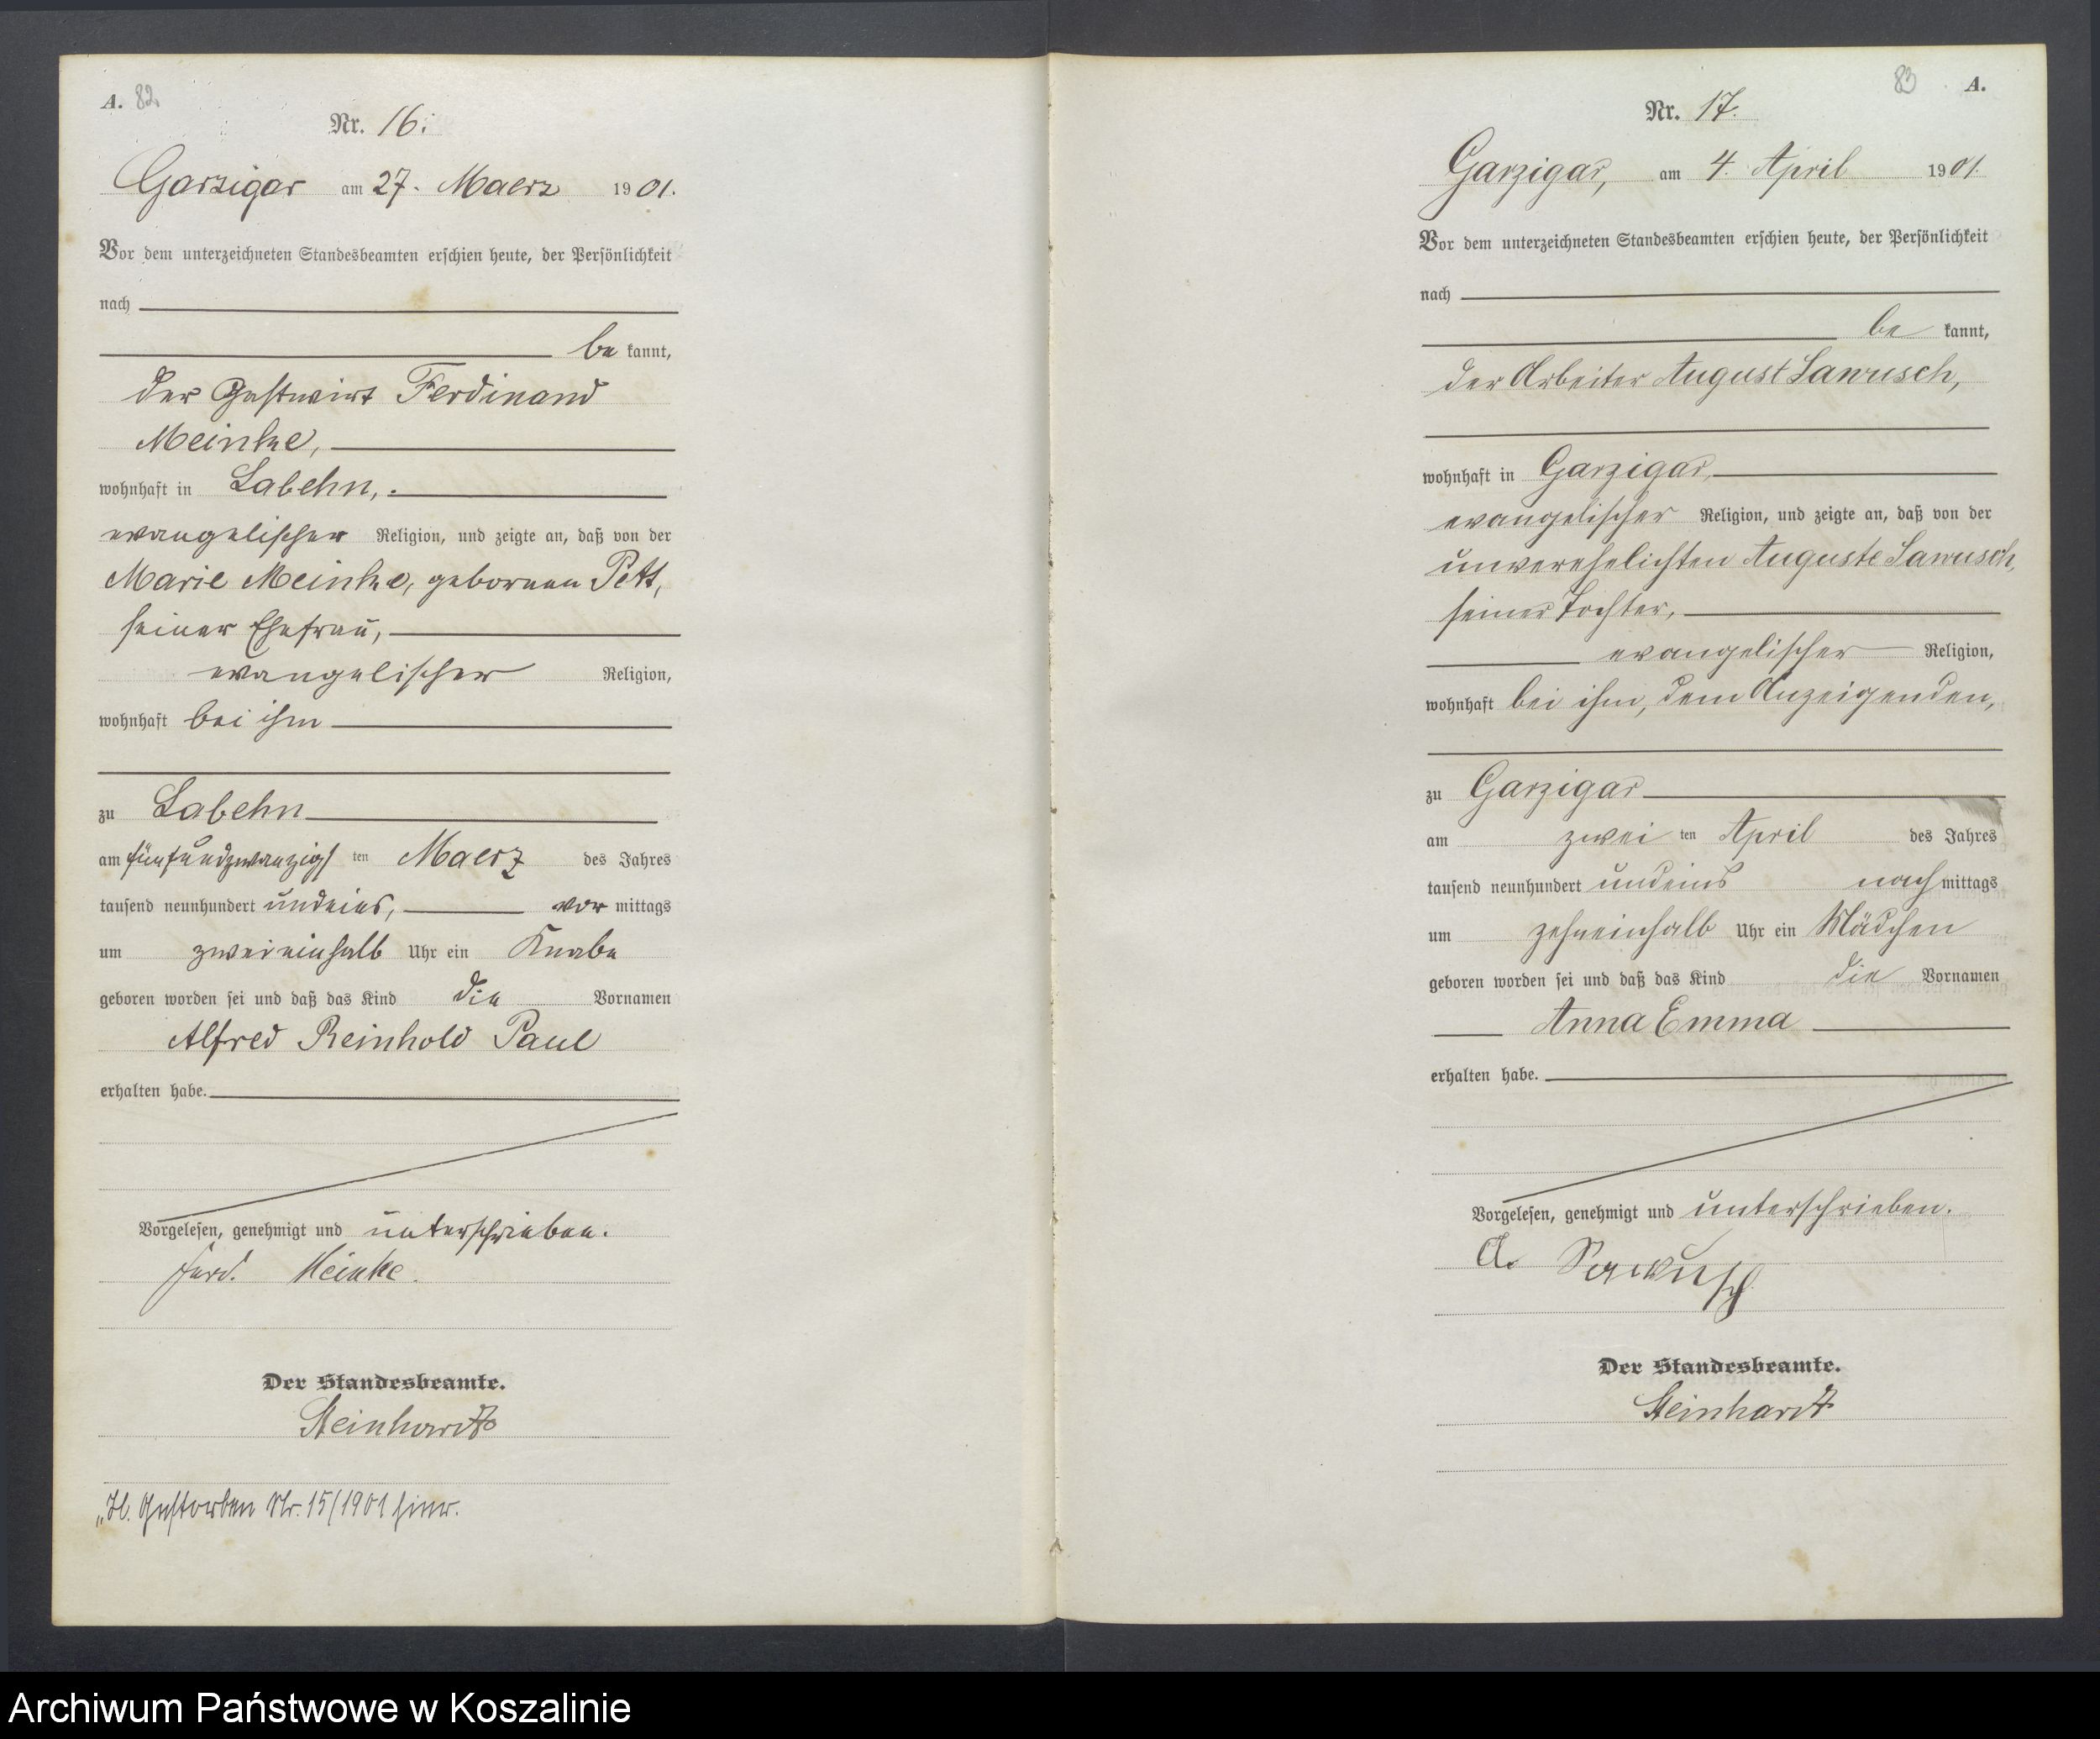 A. 82.
Nr. 16.
Garzigar am 27. Maerz 1901.
Vor dem unterzeichneten Standesbeamten erschien heute, der Persönlichkeit
nach
be kannt,
der Gastwirt Ferdinand
Meinke,
wohnhaft in Labehn,
evangelischer Religion, und zeigte an, daß von der
Marie Meinke, geborenen Pett,
seiner Ehefrau,
evangelischer Religion,
wohnhaft bei ihm
zu Labehn
am fünfundzwanzigs ten Maerz des Jahres
tausend neunhundert undeins, vor mittags
um zweieinhalb Uhr ein Knabe
geboren worden sei und daß das Kind die Vornamen
Alfred Reinhold Paul
erhalten habe.
Vorgelesen, genehmigt und unterschrieben.
Ferd. Meinke.
Der Standesbeamte.
Steinhardt
Gestorben Nr. 15/1901 hier.
83 A.
Nr. 17.
Garzigar, am 4. April 1901.
Vor dem unterzeichneten Standesbeamten erschien heute, der Persönlichkeit
nach
be kannt,
der Arbeiter August Sawusch,
wohnhaft in Garzigar,
evangelischer Religion, und zeigte an, daß von der
unverehelichten Auguste Sawusch,
seiner Tochter,
evangelischer Religion,
wohnhaft bei ihm, dem Anzeigenden,
zu Garzigar
am zwei ten April des Jahres
tausend neunhundert undeins nach mittags
um zehneinhalb Uhr ein Mädchen
geboren worden sei und daß das Kind die Vornamen
Anna Emma
erhalten habe.
Vorgelesen, genehmigt und unterschrieben.
A. Sawusch
Der Standesbeamte.
Steinhardt
Archiwum Państwowe w Koszalinie